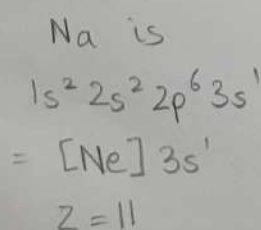 Na is
1s² 2s² 2p⁶ 3s¹
= [Ne] 3s¹
Z = 11